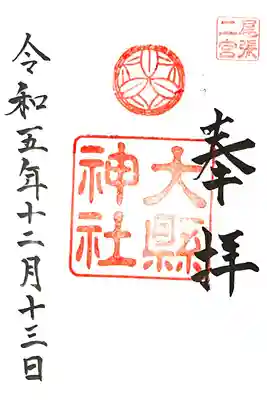 尾張
二宮
奉拝
大縣
神社
令和五年十二月十三日